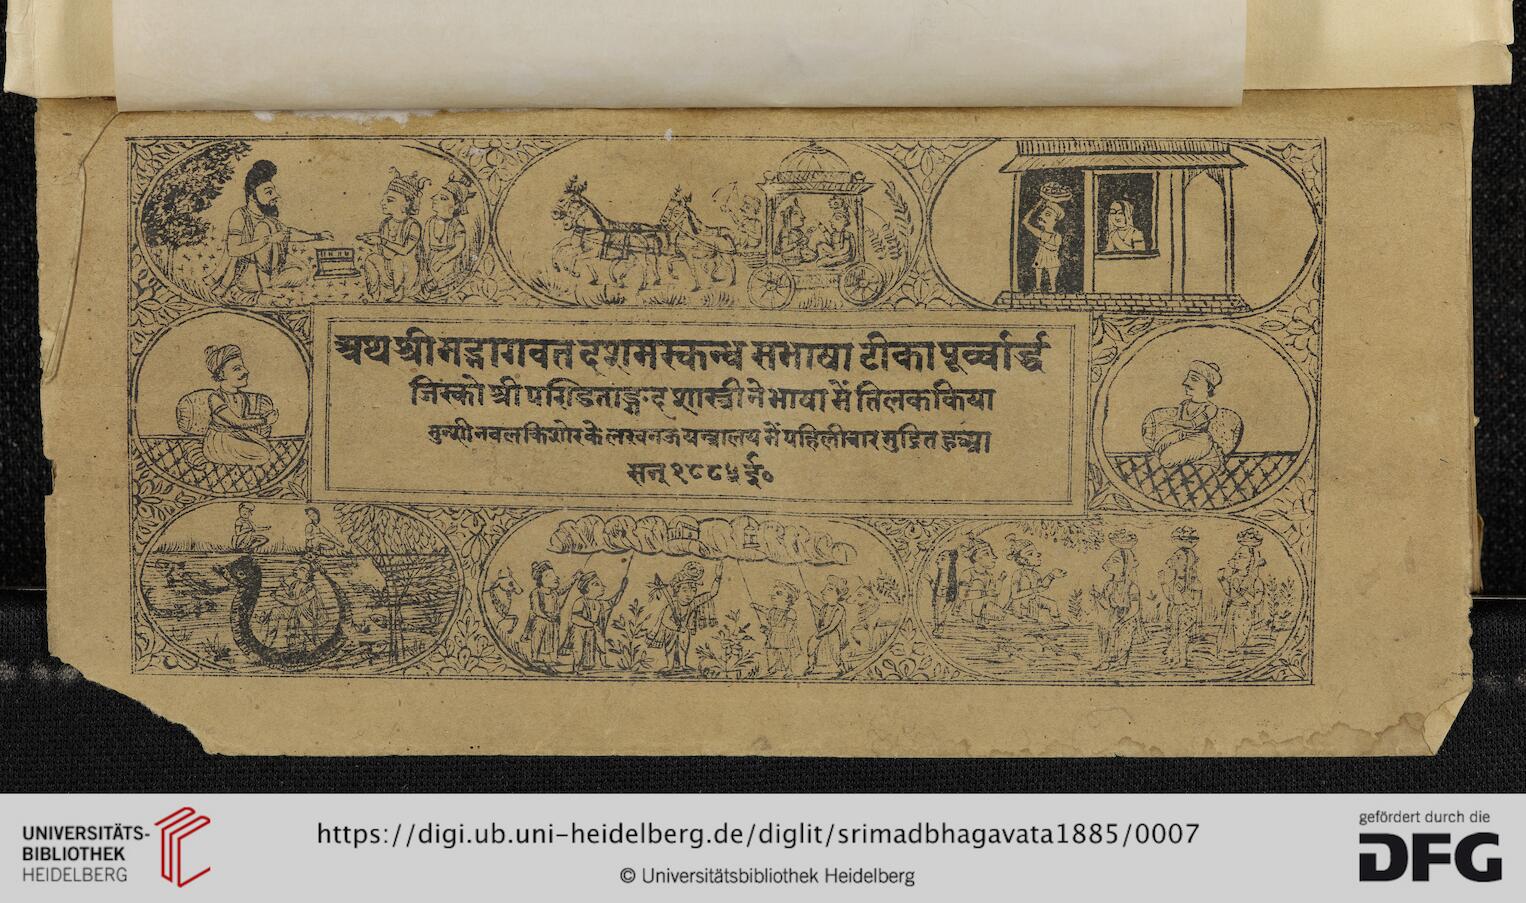 अथ श्रीमद्भागवत दशमस्कन्ध सभाषा टीका पूर्व्वार्द्ध
जिस्को श्री पण्डिताङ्गद शास्त्री ने भाषा में तिलक किया
मुन्शी नवलकिशोर के लखनऊ यन्त्रालय में पहिलीबार मुद्रित हुआ
सन् १८८५ ई०
UNIVERSITÄTS-
BIBLIOTHEK
HEIDELBERG
https://digi.ub.uni-heidelberg.de/diglit/srimadbhagavata1885/0007
© Universitätsbibliothek Heidelberg
gefördert durch die
DFG